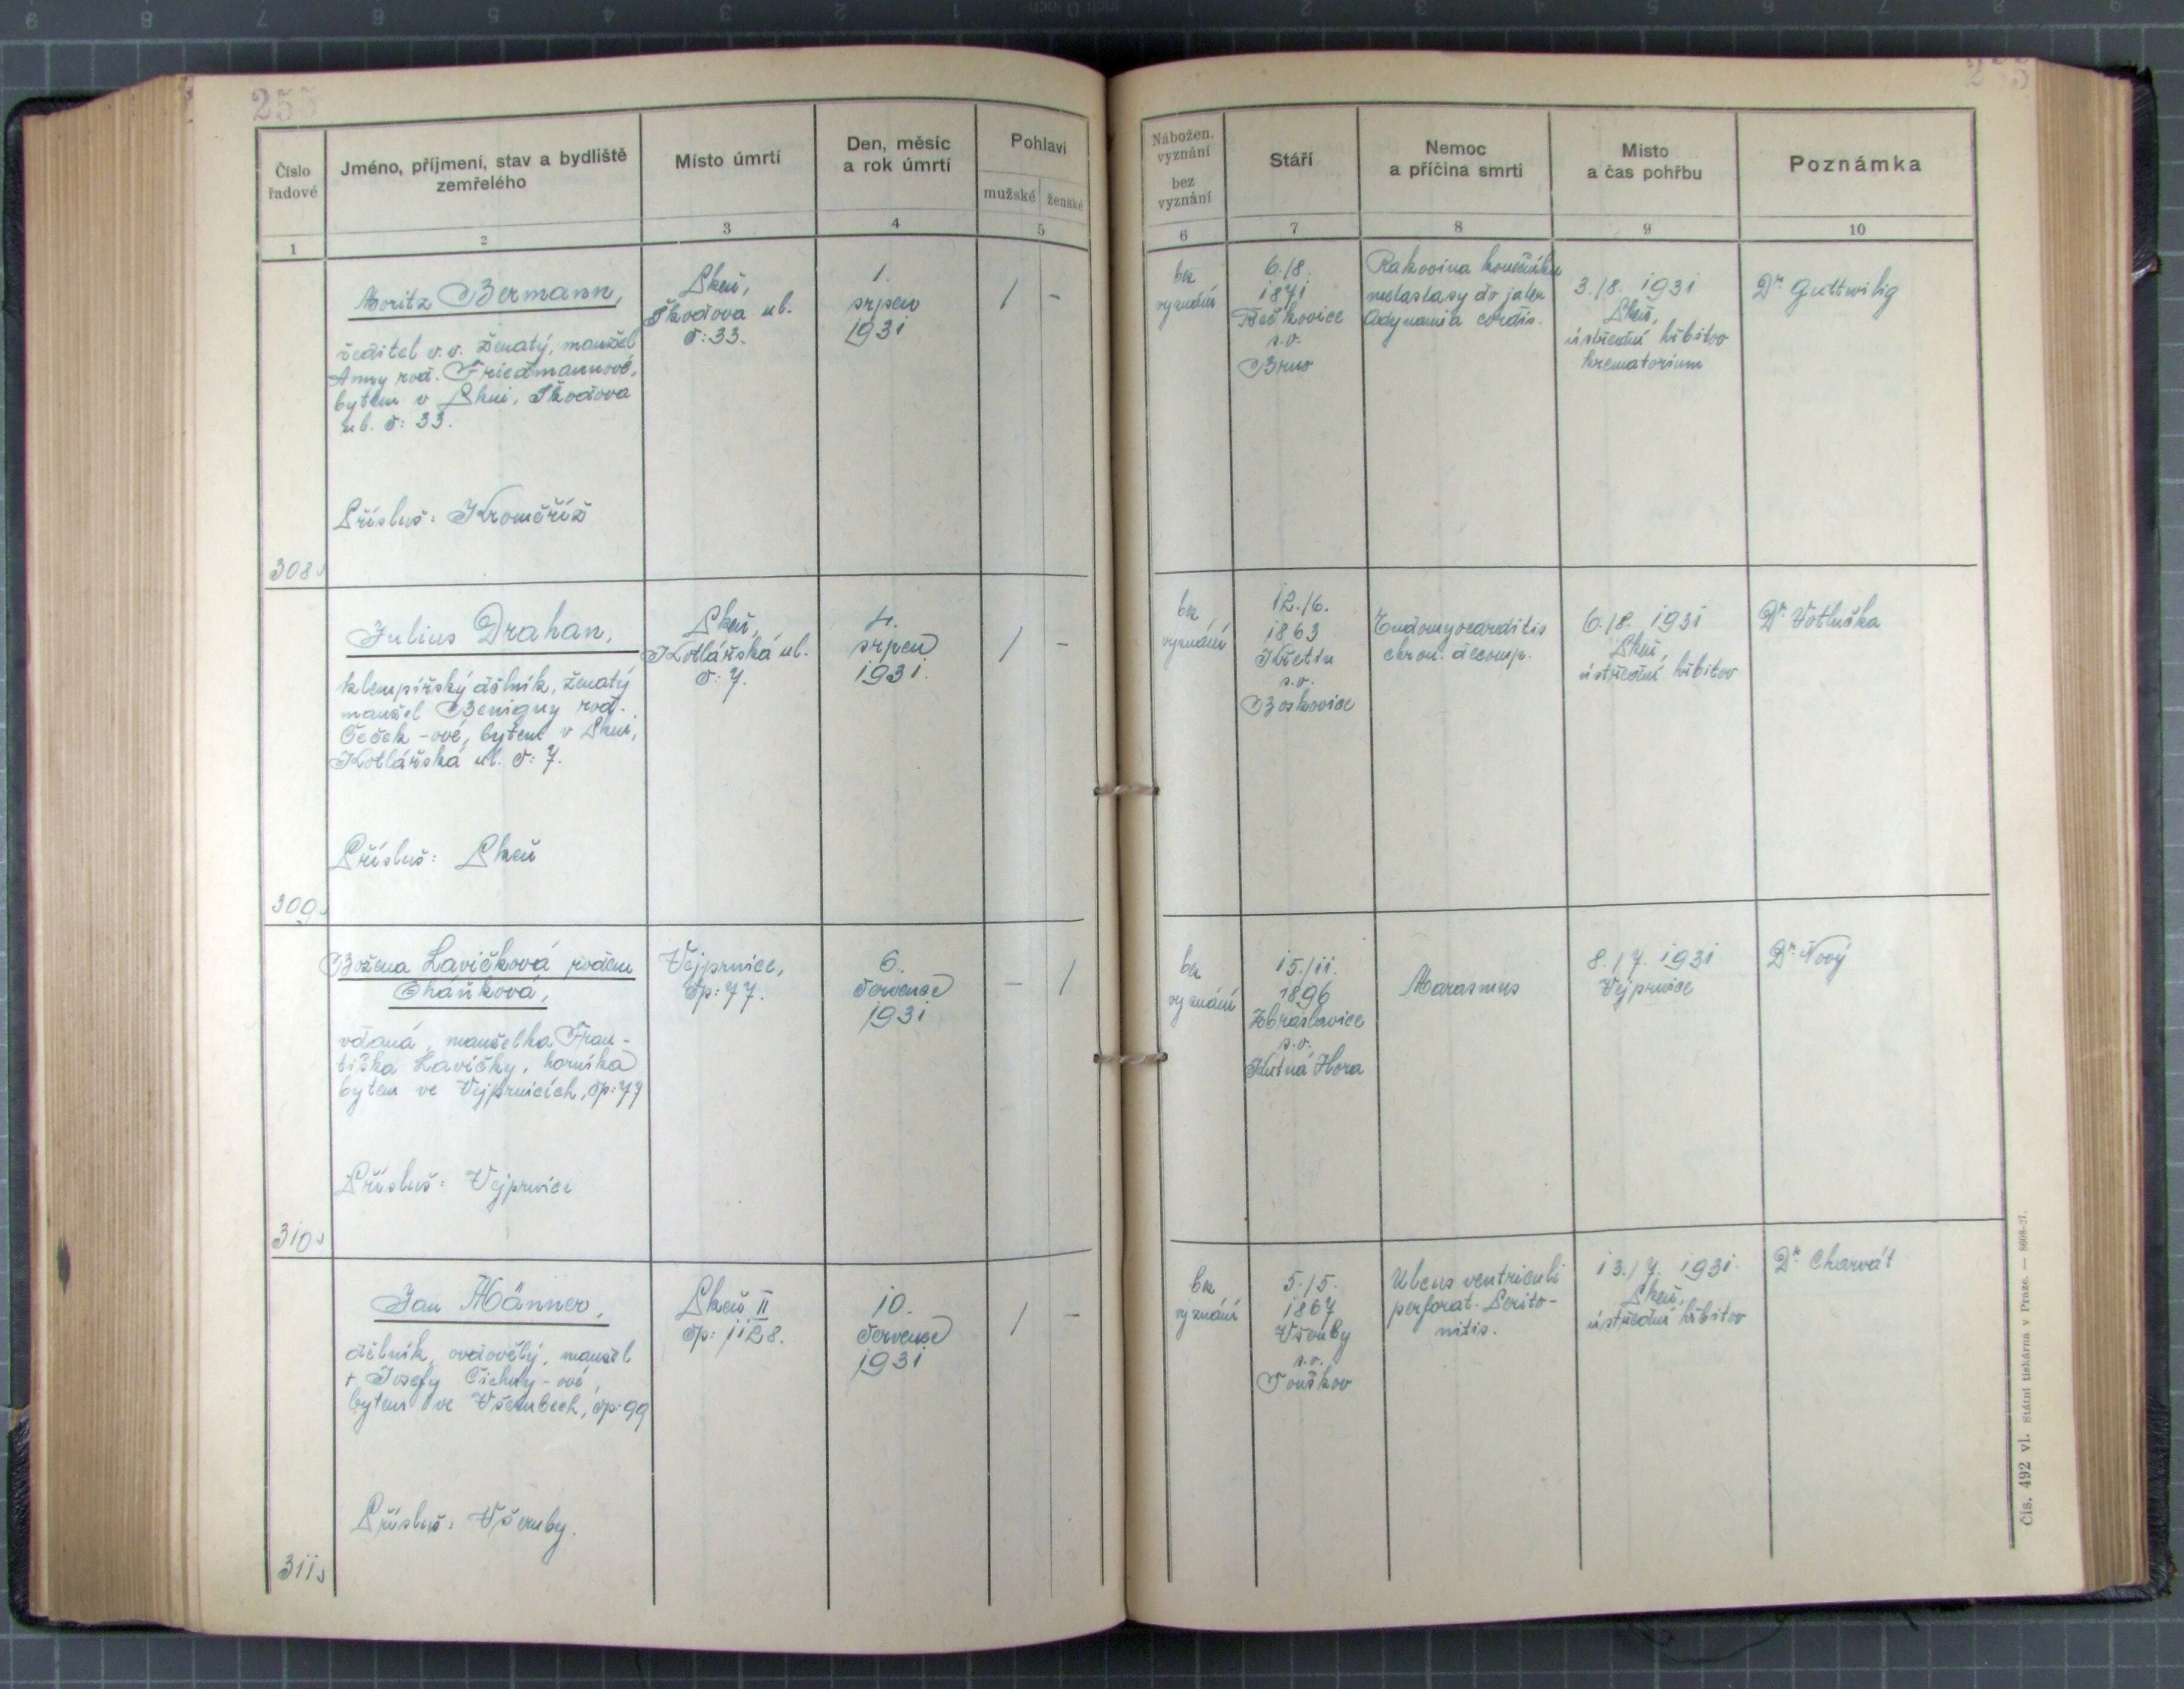 255
Číslo
řadové
Jméno, příjmení, stav a bydliště
zemřelého
Místo úmrtí
Den, měsíc
a rok úmrtí
Pohlaví
mužské
ženské
1
2
3
4
5
Nábožen.
vyznání
bez
vyznání
Stáří
Nemoc
a příčina smrti
Místo
a čas pohřbu
Poznámka
6
7
8
9
10
308
Moritz Bermann,
ředitel v.v. ženatý, manžel
Anny roz. Friedmannové,
bytem v Plzni, Škodova
ul. č: 33.
Přísluš: Kroměříž
Plzeň,
Škodova ul.
č: 33.
1.
srpen
1931
/ -
bez
vyznání
6./8.
1871
s.o.
Brno
Rakovina konečníku
metastasy do jater
Adynamia cordis.
3./8. 1931
Plzeň,
ústřední hřbitov
krematorium
Dr. Guttwilig
309
Julius Drahan,
klempířský dělník, ženatý
manžel Benigny roz.
Češek-ové, bytem v Plzni,
Kotlářská ul. č: 7.
Přísluš: Plzeň
Plzeň,
Kotlářská ul.
č: 7.
4.
srpen
1931.
/ -
bez
vyznání
12./6.
1863
Křetín
s.o.
Boskovice
Endomyocarditis
chron. decomp.
6./8. 1931
Plzeň,
ústřední hřbitov
Dr. Votluška
310
Božena Lavičková rozen
Cháňková,
vdaná, manželka Fran-
tiška Lavičky, horníka
bytem ve Vejprnicích, čp: 77
Přísluš: Vejprnice
Vejprnice,
čp: 77.
6.
července
1931
- /
bez
vyznání
15./11.
1896
Zbraslavice
s.o.
Kutná Hora
Marasmus
8./7. 1931
Vejprnice
Dr. Nový
311
Jan Männer,
dělník, ovdovělý, manžel
+ Josefy Čichny-ové,
bytem ve Všerubech, čp: 99
Přísluš: Všeruby.
Plzeň II
čp: 1128.
10.
července
1931
/ -
bez
vyznání
5./5.
1867
Všeruby
s.o.
Touškov
Ulcus ventriculi
perforat. Perito-
nitis.
13./7. 1931.
Plzeň,
ústřední hřbitov
Dr. Charvát
Čís. 492 vl. Státní tiskárna v Praze. — 8608-27.